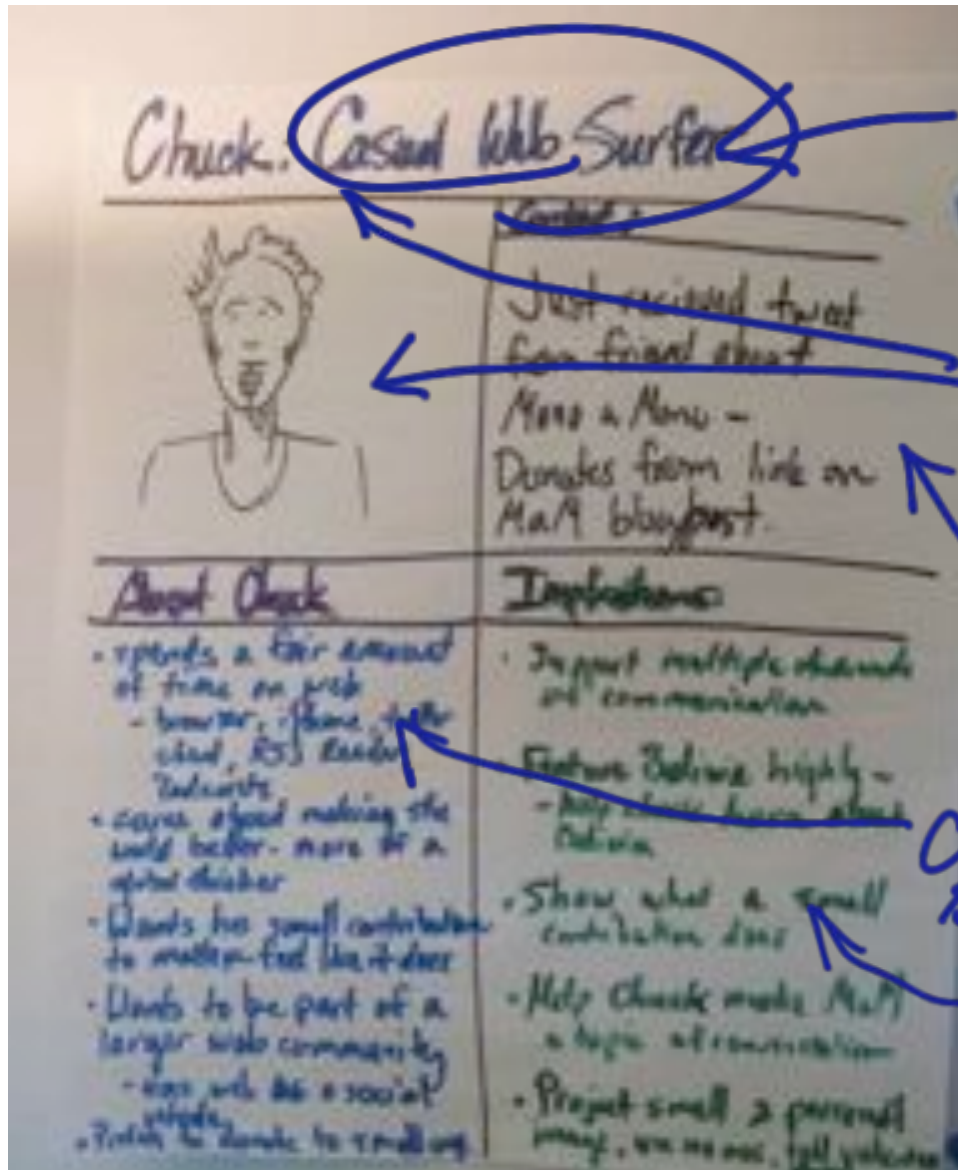 Chuck. Casual Web Surfer
Context:
Just recieved tweet
from friend about
Mano a Mano -
Donates from link on
MaM blogpost.
About Chuck
• spends a fair amount
of time on web
- browser, iphone, twitter
RSS Reader
Podcasts
• cares about making the
world better - more of a
thinker
• Wants his small contribution
to matter - feel like it does
• Wants to be part of a
larger web community
- web as a social
• to donate to small org
Implications:
• Support multiple channels
of communication
• Feature Bolivia highly -
- help Chuck learn about
Bolivia
• Show what a small
contribution does
• Help Chuck make MaM
a topic of conversation
• Project small & personal
image,